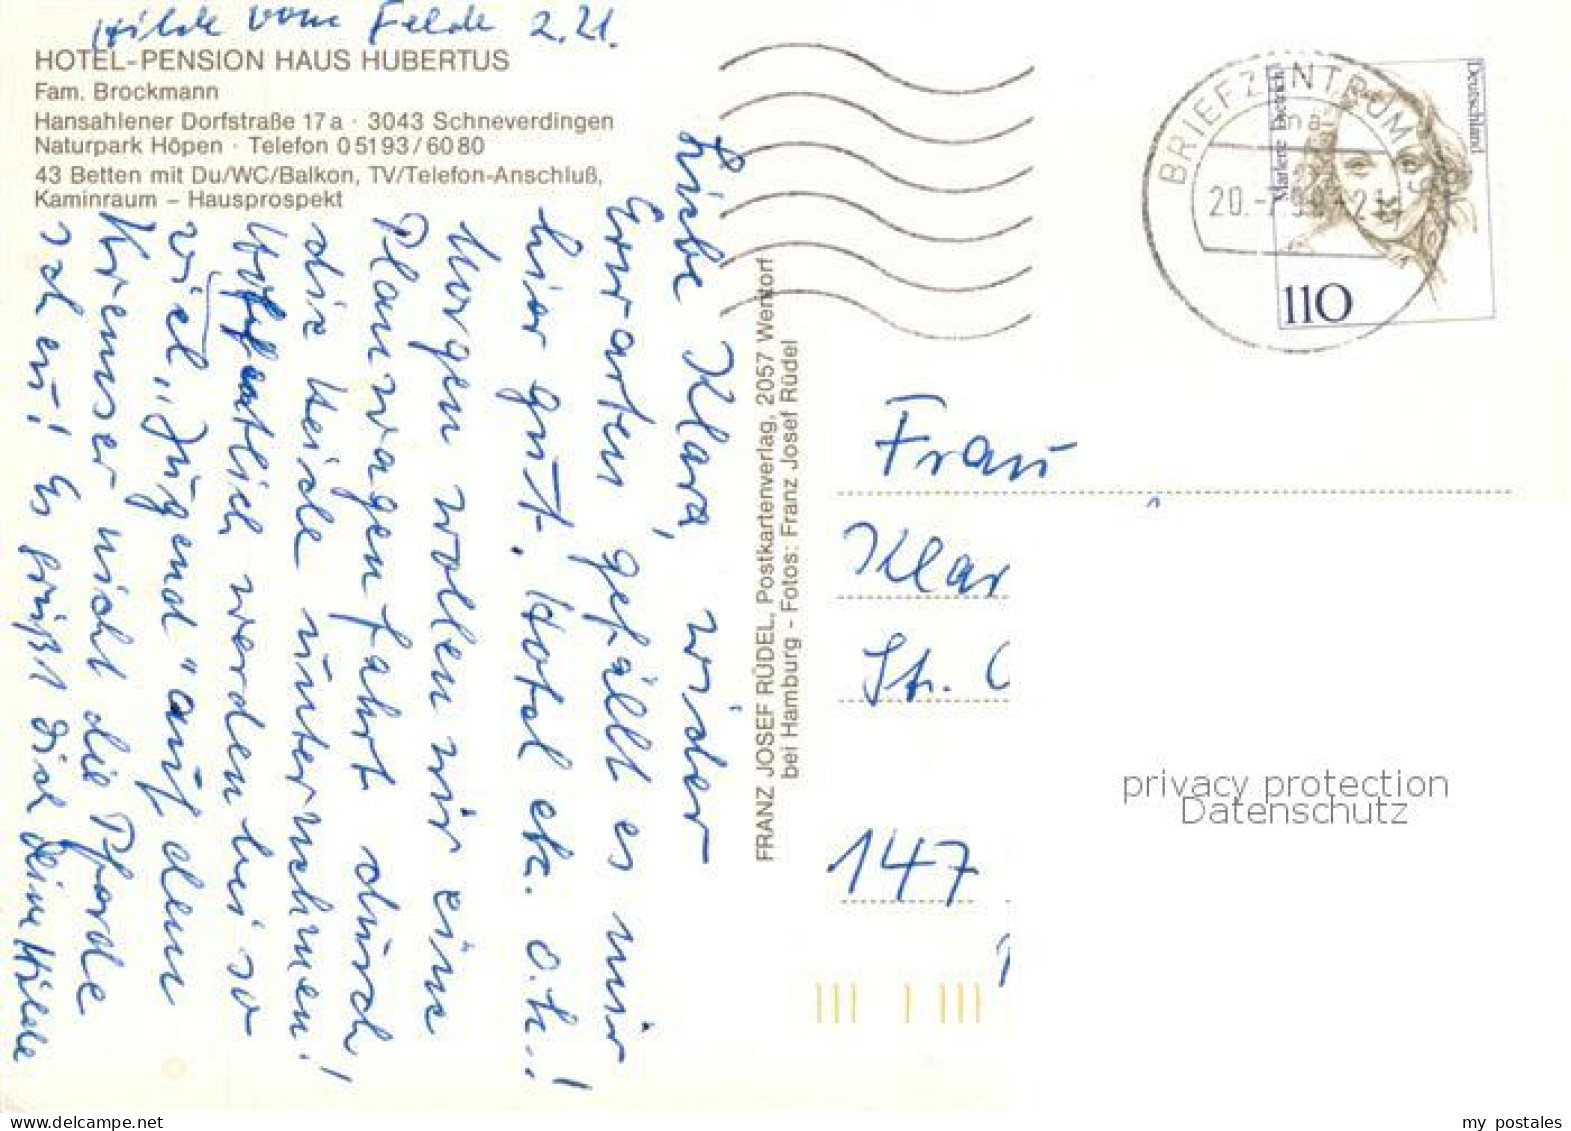 Hilde vom Felde 2.21.
HOTEL-PENSION HAUS HUBERTUS
Fam. Brockmann
Hansahlener Dorfstraße 17a · 3043 Schneverdingen
Naturpark Höpen · Telefon 05193/6080
43 Betten mit Du/WC/Balkon, TV/Telefon-Anschluß,
Kaminraum – Hausprospekt
Liebe Klara, wider
Erwarten gefällt es mir
hier gut. Hotel etc. o.k.!
Morgen wollen wir eine
Planwagenfahrt durch
die Heide unternehmen!
Hoffentlich werden bei so
viel „Jugend" auf dem
Kremser nicht die Pferde
scheu! Es grüßt Dich Deine Hilde
FRANZ JOSEF RÜDEL, Postkartenverlag, 2057 Wentorf
bei Hamburg - Fotos: Franz Josef Rüdel
BRIEFZENTRUM
na
20.-7.98-21
Marlene Dietrich
Deutschland
110
Frau
Klar
St.
147
privacy protection
Datenschutz
my postales